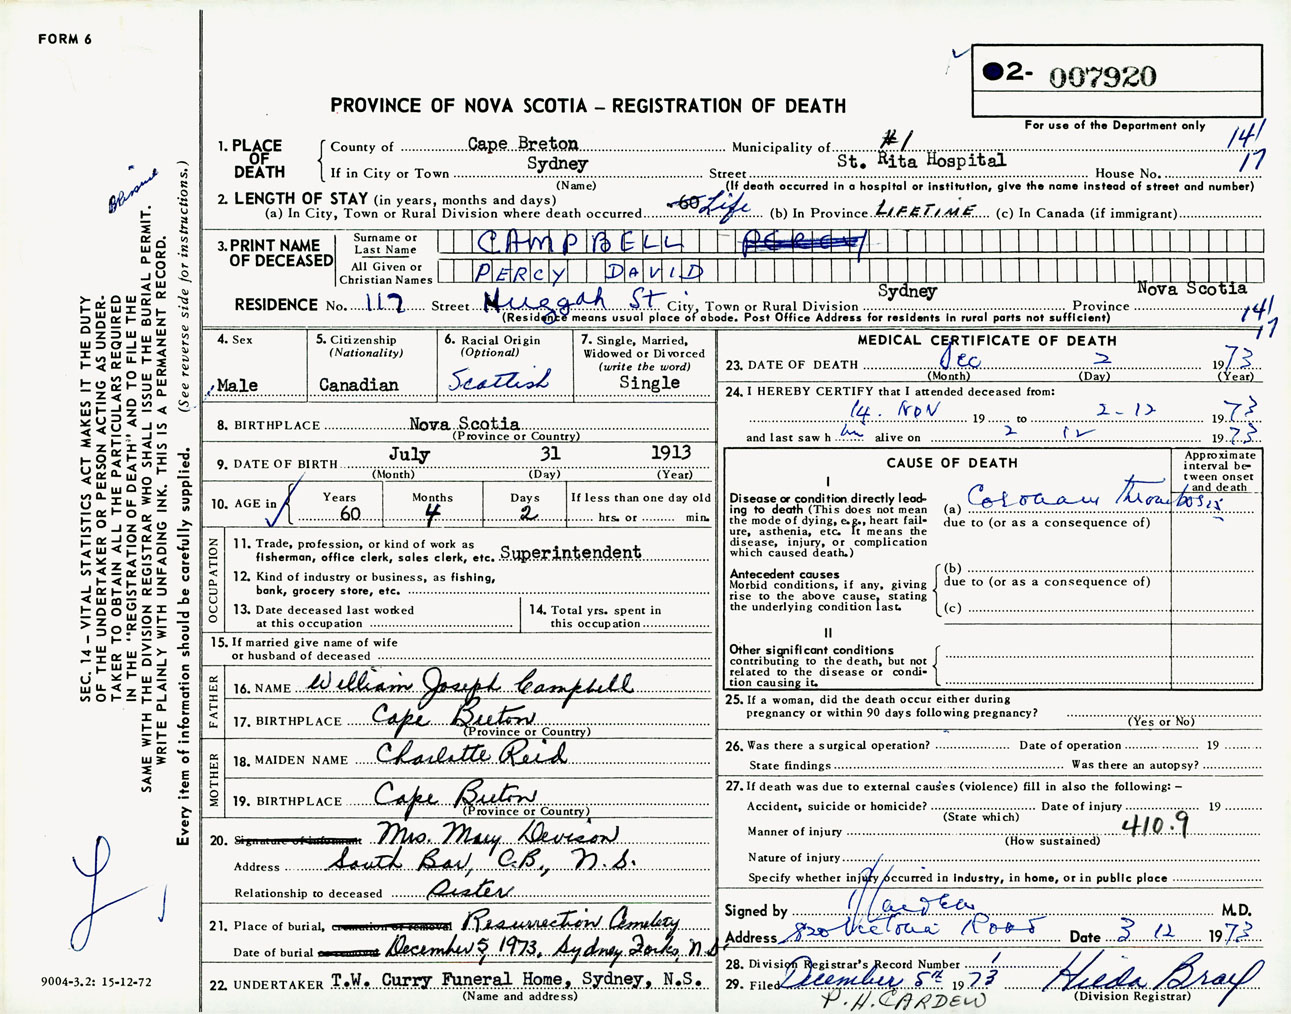 FORM 6
2- 007920
PROVINCE OF NOVA SCOTIA – REGISTRATION OF DEATH
For use of the Department only
1. PLACE OF DEATH
County of Cape Breton Municipality of #1 141
If in City or Town Sydney Street St. Rita Hospital House No. 17
(Name) (If death occurred in a hospital or institution, give the name instead of street and number)
2. LENGTH OF STAY (in years, months and days)
(a) In City, Town or Rural Division where death occurred 60 Life (b) In Province LIFETIME (c) In Canada (if immigrant)
3. PRINT NAME OF DECEASED
Surname or Last Name CAMPBELL PERCY
All Given or Christian Names PERCY DAVID
RESIDENCE No. 117 Street Huggah St City, Town or Rural Division Sydney Province Nova Scotia
(Residence means usual place of abode. Post Office Address for residents in rural parts not sufficient) 141
17
4. Sex
Male
5. Citizenship
(Nationality)
Canadian
6. Racial Origin
(Optional)
Scottish
7. Single, Married,
Widowed or Divorced
(write the word)
Single
8. BIRTHPLACE Nova Scotia
(Province or Country)
9. DATE OF BIRTH July 31 1913
(Month) (Day) (Year)
10. AGE in
Years Months Days If less than one day old
60 4 2 hrs. or min.
OCCUPATION
11. Trade, profession, or kind of work as
fisherman, office clerk, sales clerk, etc. Superintendent
12. Kind of industry or business, as fishing,
bank, grocery store, etc.
13. Date deceased last worked
at this occupation
14. Total yrs. spent in
this occupation
15. If married give name of wife
or husband of deceased
FATHER
16. NAME William Joseph Campbell
17. BIRTHPLACE Cape Breton
(Province or Country)
MOTHER
18. MAIDEN NAME Charlotte Reid
19. BIRTHPLACE Cape Breton
(Province or Country)
20. Signature of informant Mrs. Mary Devison
Address South Bar, C.B., N.S.
Relationship to deceased Sister
21. Place of burial, cremation or removal Resurrection Cemetery
Date of burial December 5, 1973, Sydney Forks, N.S.
22. UNDERTAKER T.W. Curry Funeral Home, Sydney, N.S.
(Name and address)
MEDICAL CERTIFICATE OF DEATH
23. DATE OF DEATH Dec 2 1973
(Month) (Day) (Year)
24. I HEREBY CERTIFY that I attended deceased from:
14. NOV 19 to 2-12 1973
and last saw h im alive on 2 12 1973
CAUSE OF DEATH
Approximate
interval be-
tween onset
and death
I
Disease or condition directly lead-
ing to death (This does not mean
the mode of dying, e.g., heart fail-
ure, asthenia, etc. It means the
disease, injury, or complication
which caused death.)
(a) Coronary thrombosis
due to (or as a consequence of)
Antecedent causes
Morbid conditions, if any, giving
rise to the above cause, stating
the underlying condition last.
(b)
due to (or as a consequence of)
(c)
II
Other significant conditions
contributing to the death, but not
related to the disease or condi-
tion causing it.
25. If a woman, did the death occur either during
pregnancy or within 90 days following pregnancy?
(Yes or No)
26. Was there a surgical operation? Date of operation 19
State findings Was there an autopsy?
27. If death was due to external causes (violence) fill in also the following: –
Accident, suicide or homicide? Date of injury 19
(State which)
Manner of injury 410.9
(How sustained)
Nature of injury
Specify whether injury occurred in industry, in home, or in public place
Signed by P H Carden M.D.
Address 820 Victoria Road Date 3 12 1973
28. Division Registrar's Record Number
29. Filed December 5th 1973 Hilda Bray
(Division Registrar)
P.H. CARDEW
SEC. 14 – VITAL STATISTICS ACT MAKES IT THE DUTY
OF THE UNDERTAKER OR PERSON ACTING AS UNDER-
TAKER TO OBTAIN ALL THE PARTICULARS REQUIRED
IN THE "REGISTRATION OF DEATH" AND TO FILE THE
SAME WITH THE DIVISION REGISTRAR WHO SHALL ISSUE THE BURIAL PERMIT.
WRITE PLAINLY WITH UNFADING INK. THIS IS A PERMANENT RECORD.
Every item of information should be carefully supplied. (See reverse side for instructions.)
9004-3.2: 15-12-72